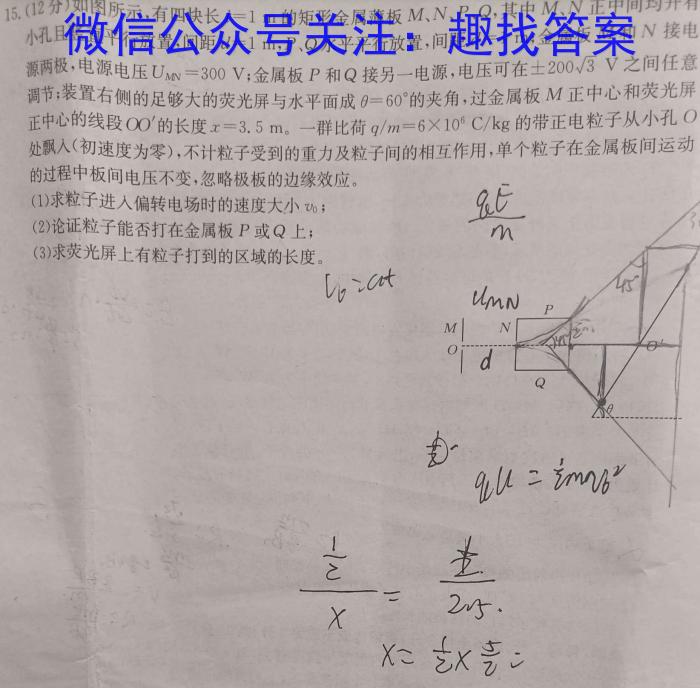 15.(12分)如图所示,有四块长l=1 m的矩形金属薄板M、N、P、Q,其中M、N正中间均开有
小孔且
微信公众号关注：趣找答案
N接电
源两极,电源电压U_MN=300 V;金属板P和Q接另一电源,电压可在±200√3 V之间任意
调节;装置右侧的足够大的荧光屏与水平面成θ=60°的夹角,过金属板M正中心和荧光屏
正中心的线段OO′的长度x=3.5 m。一群比荷q/m=6×10⁶ C/kg的带正电粒子从小孔O
处飘入(初速度为零),不计粒子受到的重力及粒子间的相互作用,单个粒子在金属板间运动
的过程中板间电压不变,忽略极板的边缘效应。
(1)求粒子进入偏转电场时的速度大小v₀;
(2)论证粒子能否打在金属板P或Q上;
(3)求荧光屏上有粒子打到的区域的长度。
qE/m
U_MN
45°
M N P
O d O′
Q θ
qU=½mv₀²
x=½×5/2=